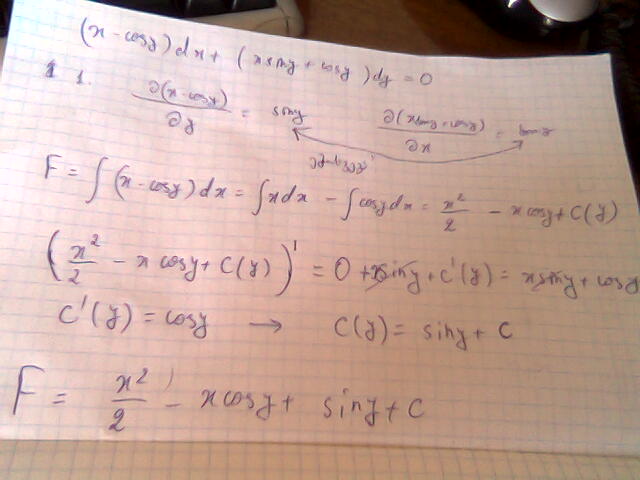 (x - cosy) dx + (x siny + cosy) dy = 0
1 1. ∂(x - cosy) / ∂y = siny ∂(x siny + cosy) / ∂x = siny
F = ∫ (x - cosy) dx = ∫ x dx - ∫ cosy dx = x²/2 - x cosy + C(y)
(x²/2 - x cosy + C(y))' = 0 + x siny + C'(y) = x siny + cosy
C'(y) = cosy → C(y) = siny + C
F = x²/2 - x cosy + siny + C